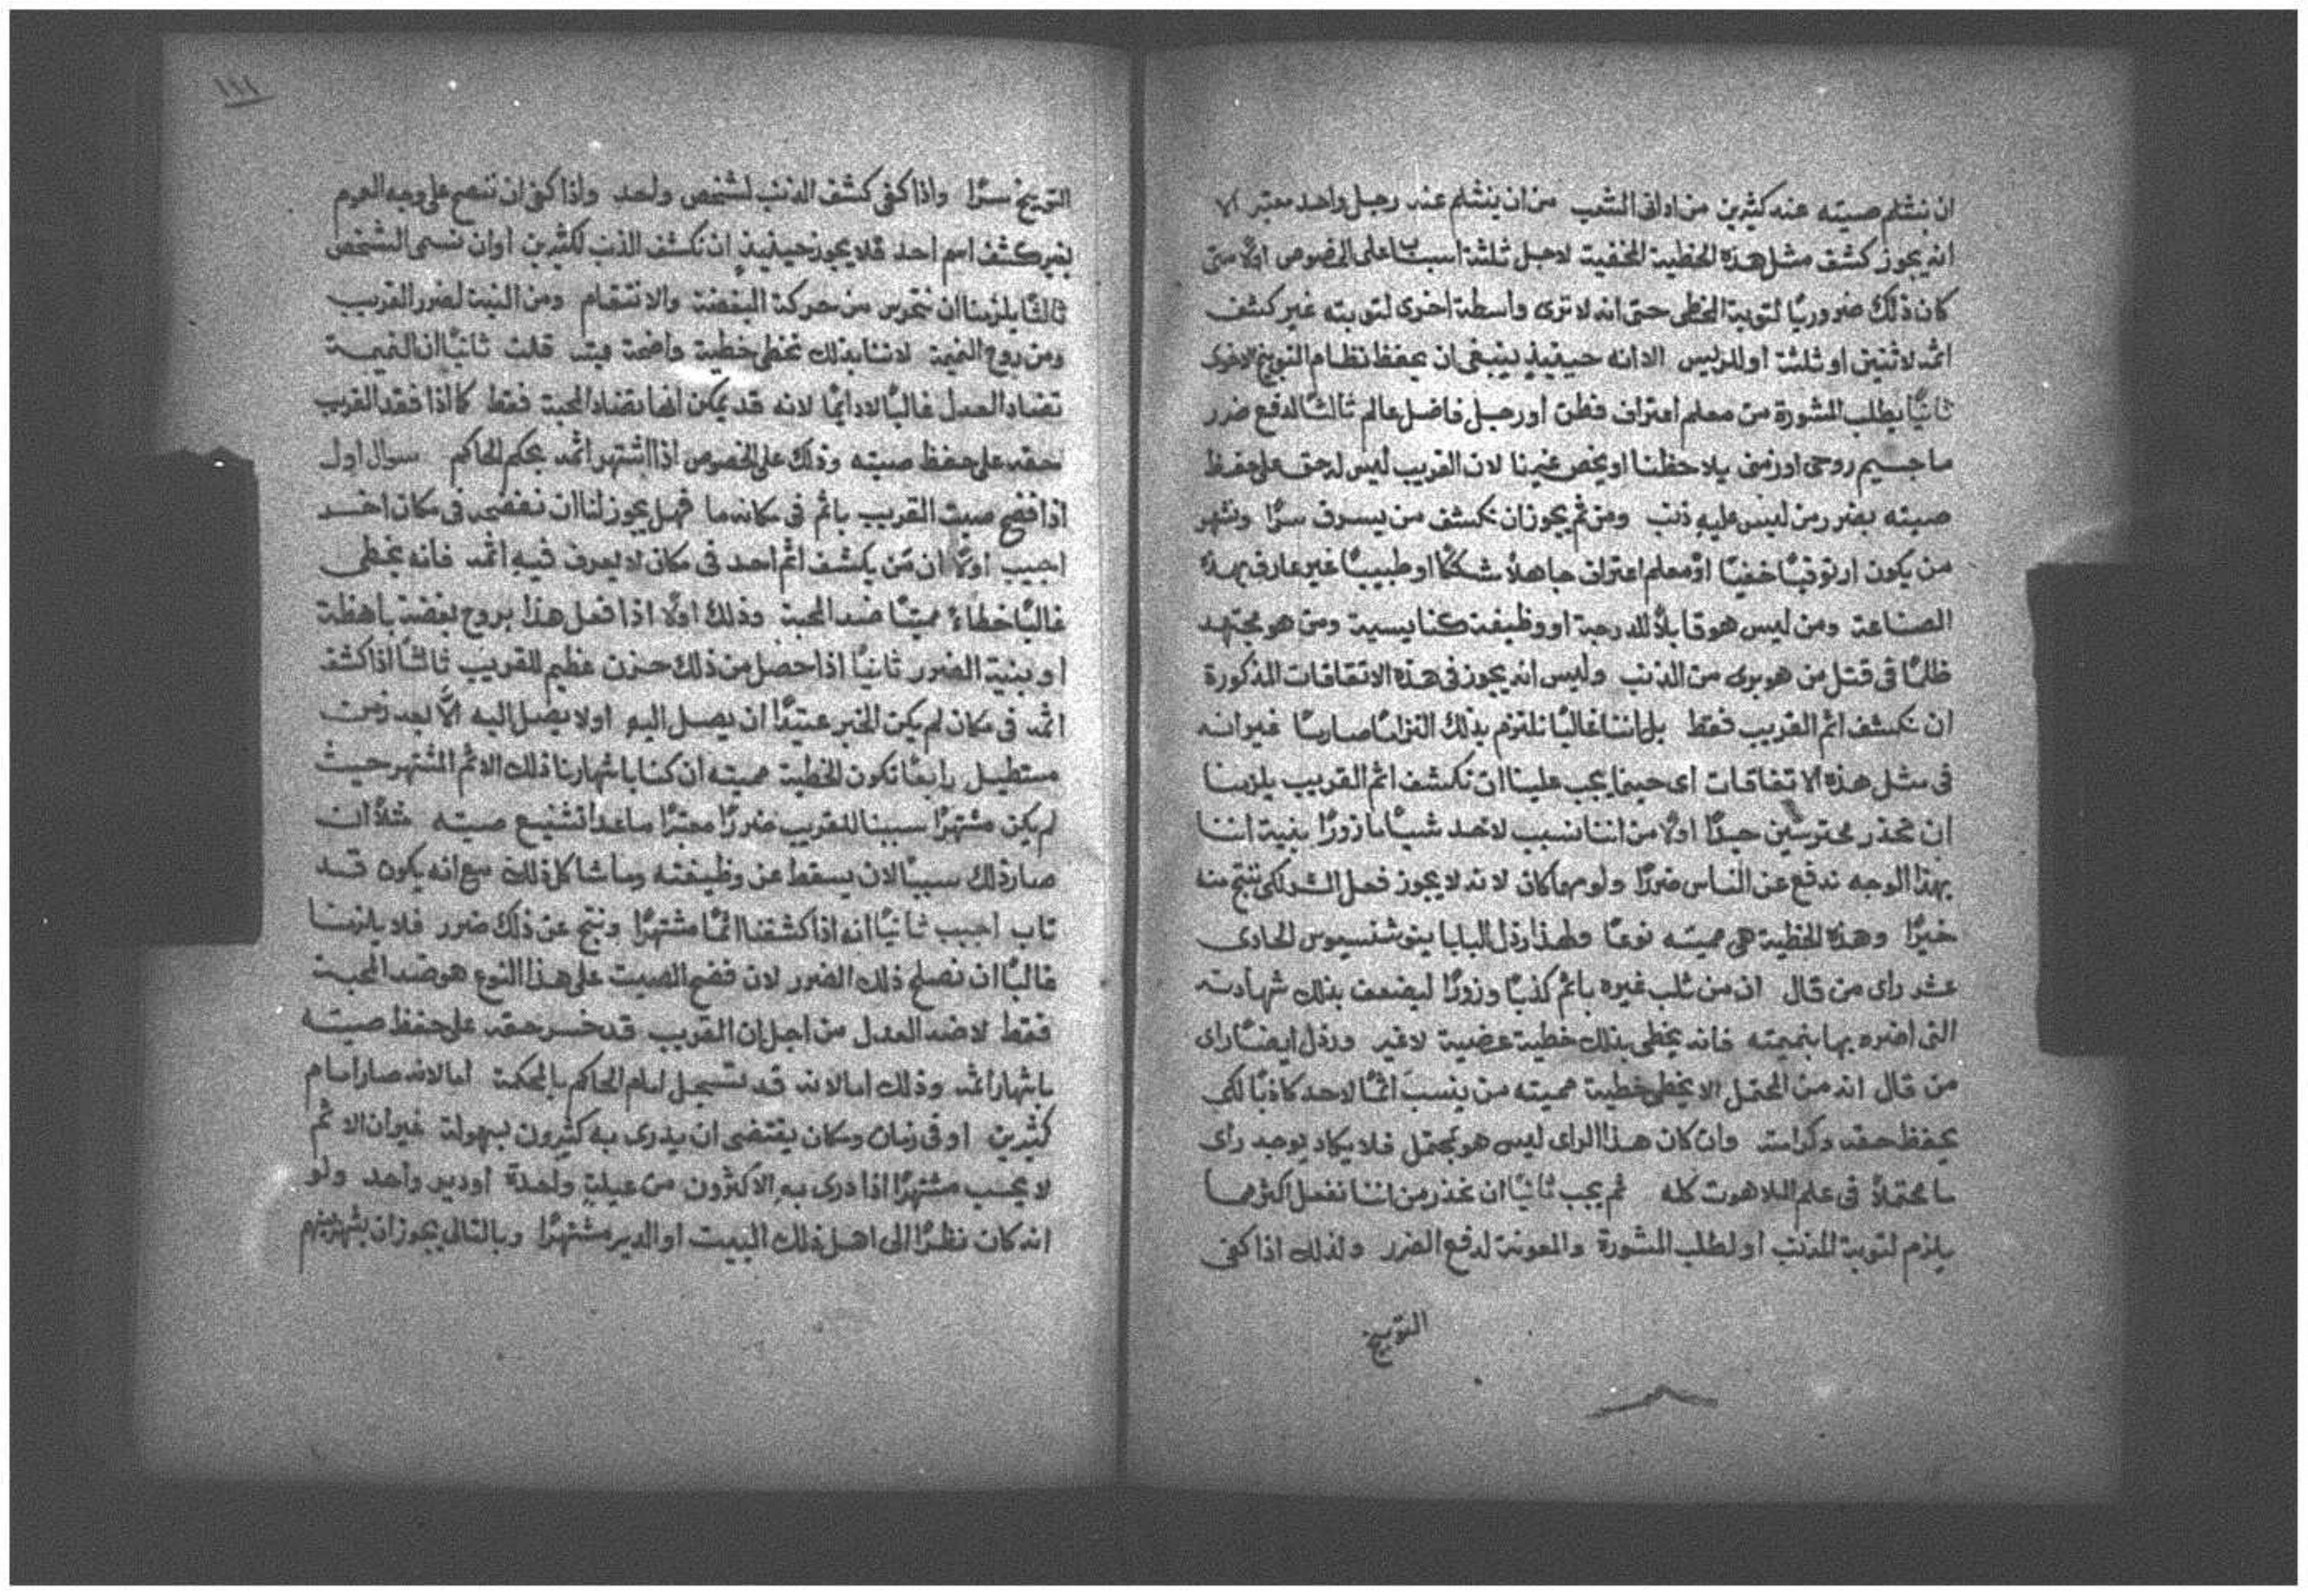 ان ينثلم صيته عند كثيرين من ادانى الشعب من ان ينثلم عند رجل واحد معتبر الا
انه يجوز كشف مثل هذه الخطية الخفية لاجل ثلثة اسباب على الخصوص اولًا متى
كان ذلك ضروريًا لتوبة المخطى حتى انه لا ترى واسطة اخرى لتوبته غير كشف
اثمه لاثنين او ثلثة او للرئيس الا انه حينيذٍ ينبغى ان يحفظ نظام التوبيخ الاخوى
ثانيًا يطلب المشورة من معلم اعتراف فطن او رجل فاضل عالم ثالثًا لدفع ضرر
ما جسيم روحى او زمنى يلاحظنا او يخص غيرنا لان القريب ليس له حق على حفظ
صيته بضرر من ليس عليه ذنب ومن ثم يجوز ان نكشف من يسرق سرًا ونشهر
من يكون ارتوقيًا خفيًا او معلم اعتراف جاهلًا شككًا او طبيبًا غير عارف بهذه
الصناعة ومن ليس هو قابلًا للدرجة او وظيفة كنايسية ومن هو مجتهد
ظلمًا فى قتل من هو برى من الذنب وليس انه يجوز فى هذه الاتفاقات المذكورة
ان نكشف اثم القريب فقط بل اننا غالبًا نلتزم بذلك التزامًا صارمًا غير انه
فى مثل هذه الاتفاقات اى حينما يجب علينا ان نكشف اثم القريب يلزمنا
ان نحذر محترسين جيدًا اولًا من اننا ننسب لاحد شيًا ما زورًا بنية اننا
بهذا الوجه ندفع عن الناس ضررًا ولو مهما كان لانه لا يجوز فعل الشر لكى ينتج منه
خيرًا وهذه الخطية هى مميته نوعًا ولهذا رذل البابا ينوشنسيوس الحادى
عشر راى من قال ان من ثلب غيره باثم كذبًا وزورًا ليضعف بذلك شهادته
التى اضره بها بنميمته فانه يخطى بذلك خطية عرضية لا غير ورذل ايضًا راى
من قال انه من المحتمل الا يخطى خطية مميته من ينسب اثمًا لاحد كاذبًا لكى
يحفظ حقه وكرامته وان كان هذا الراى ليس هو بمحتمل فلا يكاد يوجد راى
ما محتملًا فى علم اللاهوت كله ثم يجب ثانيًا ان نحذر من اننا نفعل اكثر مما
يلزم لتوبة المذنب او لطلب المشورة والمعونة لدفع الضرر ولذلك اذا كفى
التوبيخ
١١١
التوبيخ سرًا واذا كفى كشف الذنب لشخص واحد واذا كفى ان تنصح على وجه العموم
بغير كشف اسم احد فلا يجوز حينيذٍ ان نكشف الذنب لكثيرين او ان نسمى الشخص
ثالثًا يلزمنا ان نحترس من حركة البغضة والانتقام ومن النية لضرر القريب
ومن روح النميمة لاننا بذلك نخطى خطية واضحة قلت ثانيًا ان النميمة
تضاد العدل غالبًا لا دايمًا لانه قد يمكن انها تضاد المحبة فقط كما اذا فقد القريب
حقه على حفظ صيته وذلك على الخصوص اذا اشتهر اثمه بحكم الحاكم سوال اول
اذا فضح صيت القريب باثم فى مكان ما فهل يجوز لنا ان نفضحه فى مكان اخر
اجيب اولًا ان من يكشف اثم احد فى مكان لا يعرف فيه اثمه فانه يخطى
غالبًا خطاءً مميتًا ضد المحبة وذلك اولًا اذا فعل هذا بروح بغضة باهظة
او بنية الضرر ثانيًا اذا حصل من ذلك حزن عظيم للقريب ثالثًا اذا كشف
اثمه فى مكان لم يكن الخبر عتيدًا ان يصل اليه او لا يصل اليه الّا بعد زمن
مستطيل رابعًا تكون الخطية مميته ان كنا باشهارنا ذلك الاثم المشتهر حيث
لم يكن مشتهرًا سببنا للقريب ضررًا معتبرًا ما عدا تشنيع صيته مثلًا ان
صار ذلك سببًا لان يسقط عن وظيفته وما شاكل ذلك مع انه يكون قد
تاب اجيب ثانيًا انه اذا كشفنا اثمًا مشتهرًا ونتج عن ذلك ضرر فلا يلزمنا
غالبًا ان نصلح ذلك الضرر لان فضح الصيت على هذا النوع هو ضد المحبة
فقط لا ضد العدل من اجل ان القريب قد خسر حقه على حفظ صيته
باشهار اثمه وذلك اما لانه قد تسجل امام الحاكم بالمحكمة اما لانه صار امام
كثيرين او فى زمان ومكان يقتضى ان يدرى به كثيرون بسهولة غير ان الاثم
لا يحسب مشتهرًا اذا درى به الاكثرون من عيلةٍ واحدة او دير واحد ولو
انه كان نظرًا الى اهل ذلك البيت او الدير مشتهرًا وبالتالى يجوز ان يشهر بينهم